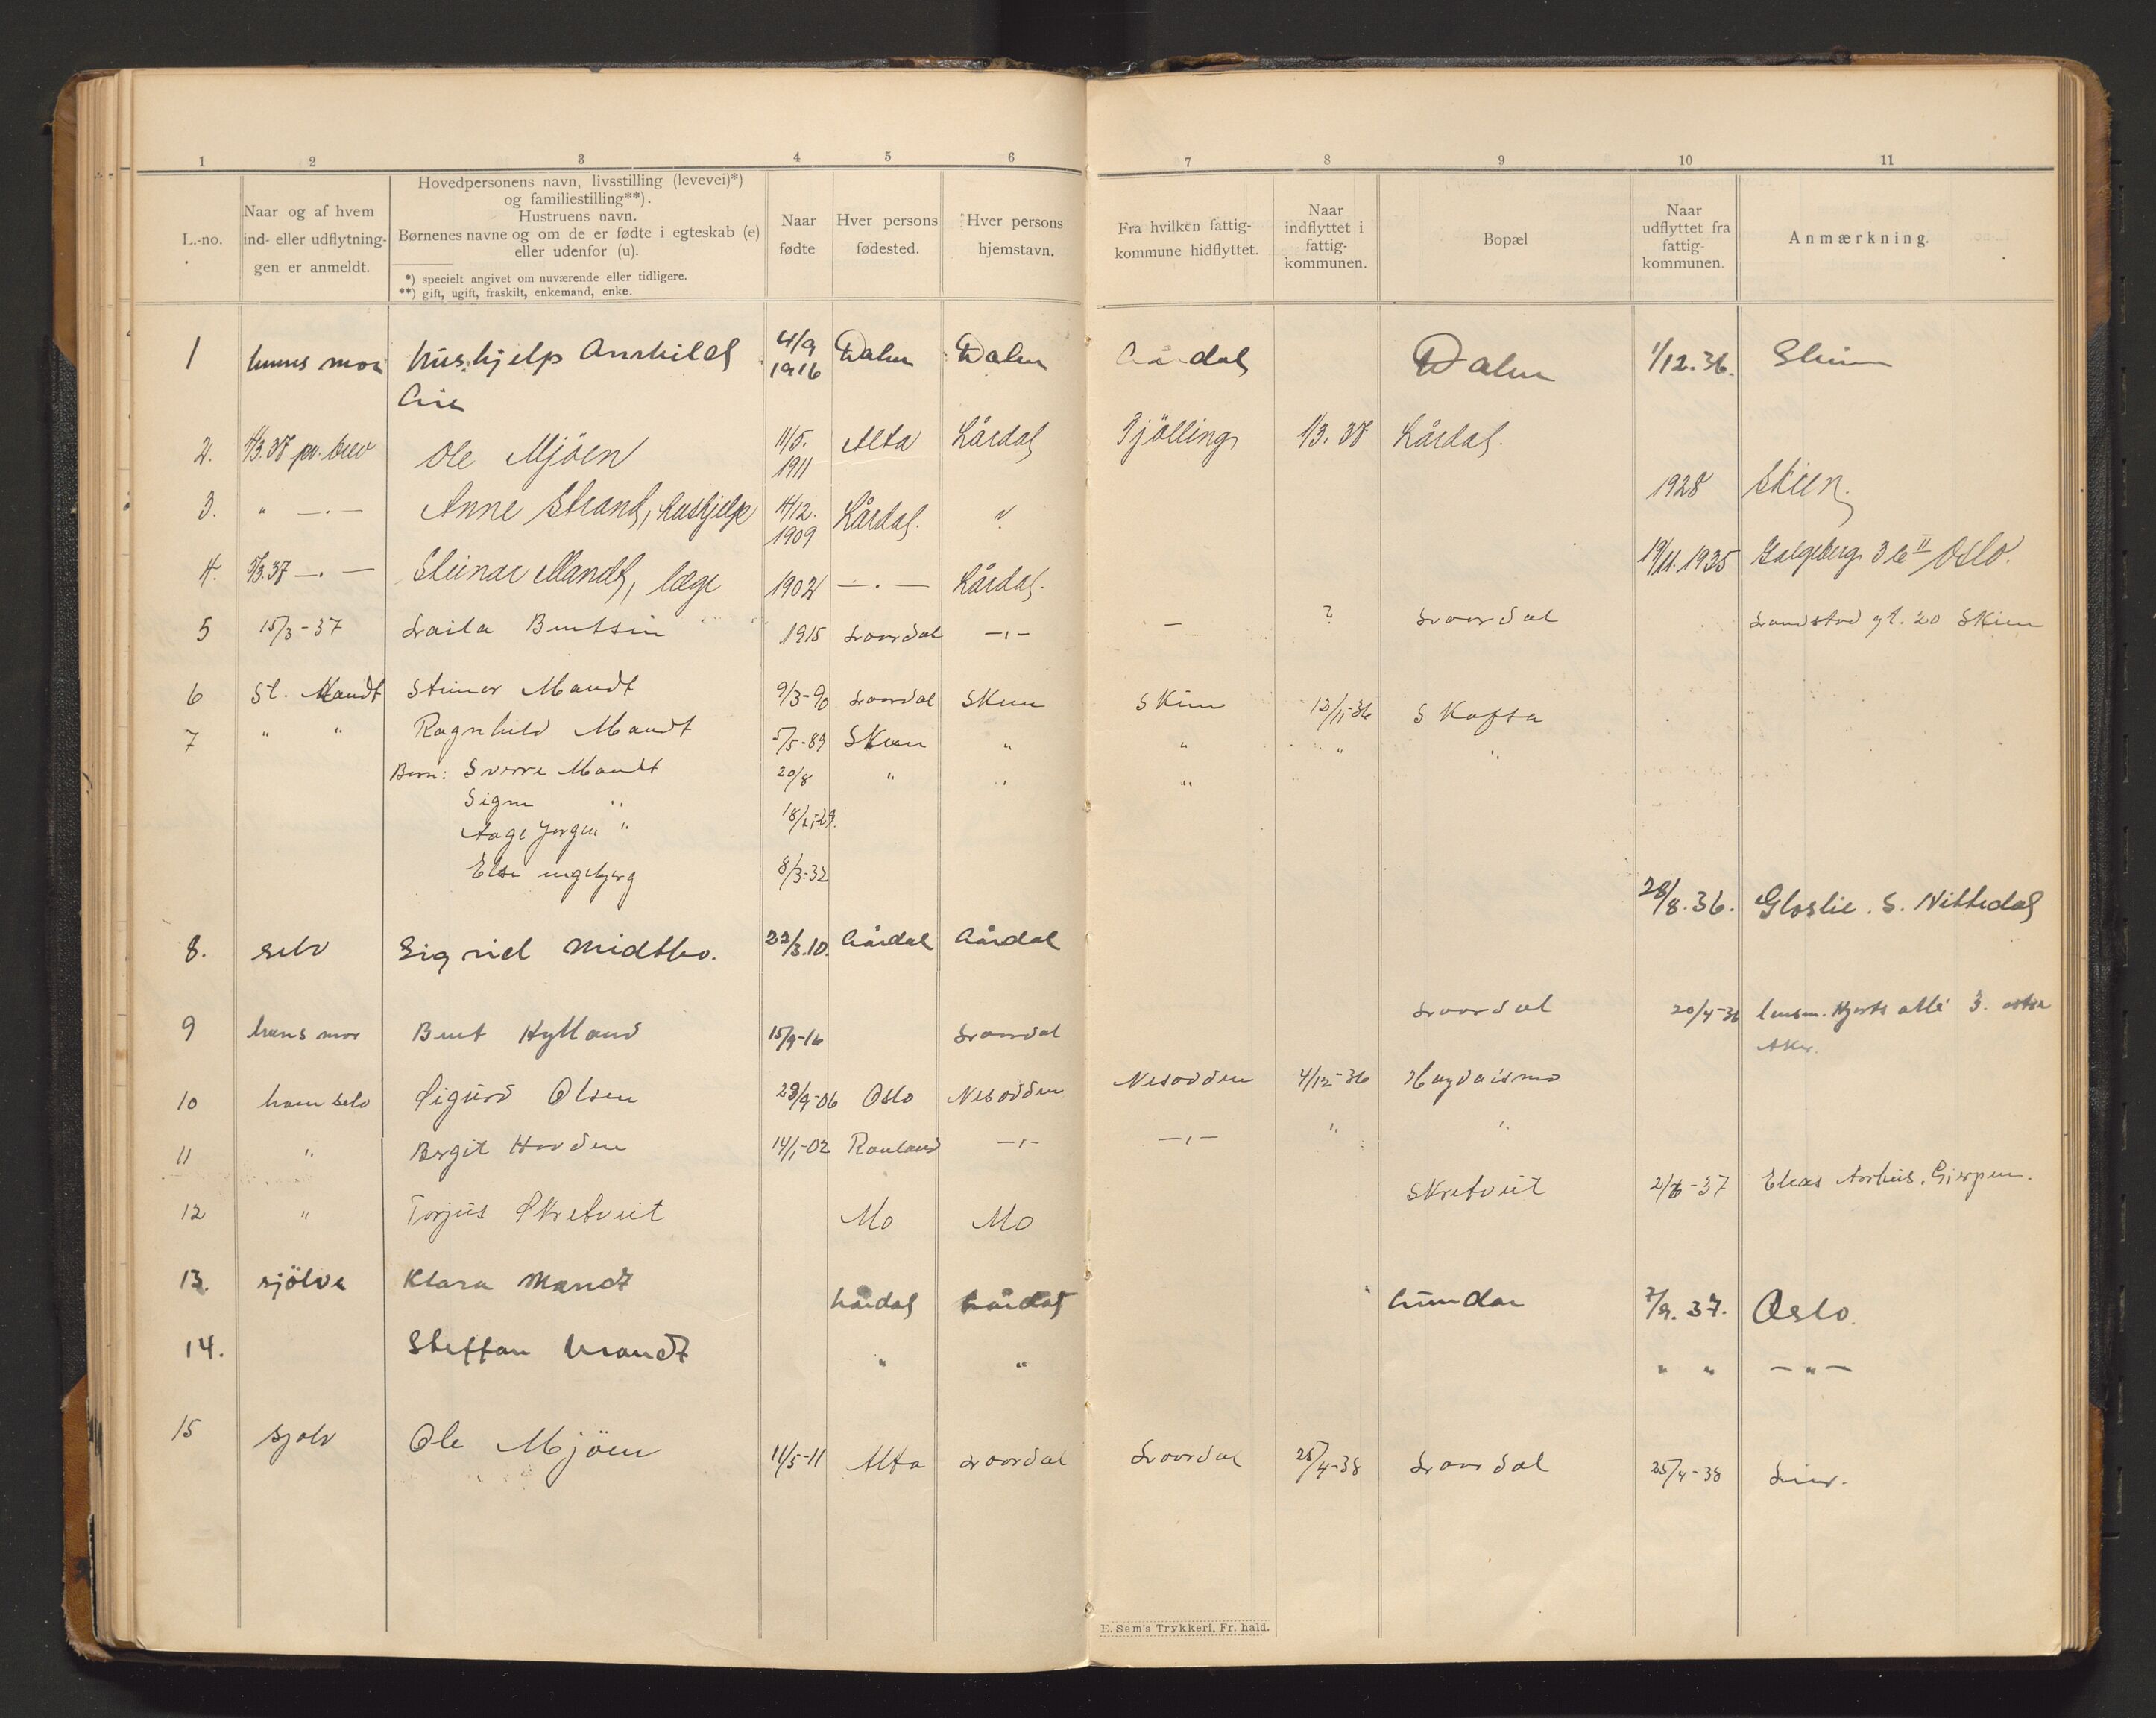 1 2 3 4 5 6 7 8 9 10 11
L.-no.
Naar og af hvem
ind- eller udflytning-
gen er anmeldt.
Hovedpersonens navn, livsstilling (levevei)*)
og familiestilling**).
Hustruens navn.
Børnenes navne og om de er fødte i egteskab (e)
eller udenfor (u).
*) specielt angivet om nuværende eller tidligere.
**) gift, ugift, fraskilt, enkemand, enke.
Naar
fødte
Hver persons
fødested.
Hver persons
hjemstavn.
Fra hvilken fattig-
kommune hidflyttet.
Naar
indflyttet i
fattig-
kommunen.
Bopæl
Naar
udflyttet fra
fattig-
kommunen.
Anmærkning.
1 hennes mor hushjelp 4/9 1916 Dalen Dalen Dalen 1/12.36.
2. 4/3.37 pr. brev Ole Mjöen 11/5. 1911 Alta Lårdal Tjölling 1/3.37 Lårdal.
3. " —.— Anne Strand, hushjelp 4/12. 1909 Lårdal. " 1928 Skien.
4. 5/3.37 —.— Steinar Mandt, læge 1902 —.— Lårdal. 19/11.1935 Galgeberg 3 b II Oslo.
5 15/3-37 Laila Bentsen 1915 Laardal —,— — ? Laardal Landstad gt. 20 Skien
6 St. Mandt Steinar Mandt 9/3-90 Laardal Skien Skien 12/11-36 Skafsa
7 " " Ragnhild Mandt 5/5-89 Skien " " " "
Barn: Sverre Mandt 20/8 " " "
Signe "
Aage Jørgen " 18/11-29.
Else Ingebjørg 8/3-32
8. selv Sigrid Midtbo. 22/3.10. Lårdal Lårdal 28/8.36. Gloslie. S. Nittedal
9 hans mor Bent Hylland 15/9-16 Laardal Laardal 20/4-36 lensm. Hjorts allé 3. østre
Aker.
10 ham selv Sigurd Olsen 28/9-06 Oslo Nesodden Nesodden 4/12-36 Høydalsmo
11 " Bergit Hovden 14/1-02 Rauland —,— —,— " "
12 " Torjus Skretveit Mo Mo Skretveit 2/6-37 Elias Aarhus, Gjerpen.
13. sjölve Klara Mandt Lårdal Lårdal Lunden 7/9.37. Oslo.
14. Steffan Mandt " " " " —"—
15 sjølv Ole Mjöen 11/5-11 Alta Laardal Laardal 25/4-38 Laardal 25/4-38 Lier.
E. Sem's Trykkeri, Fr. hald.